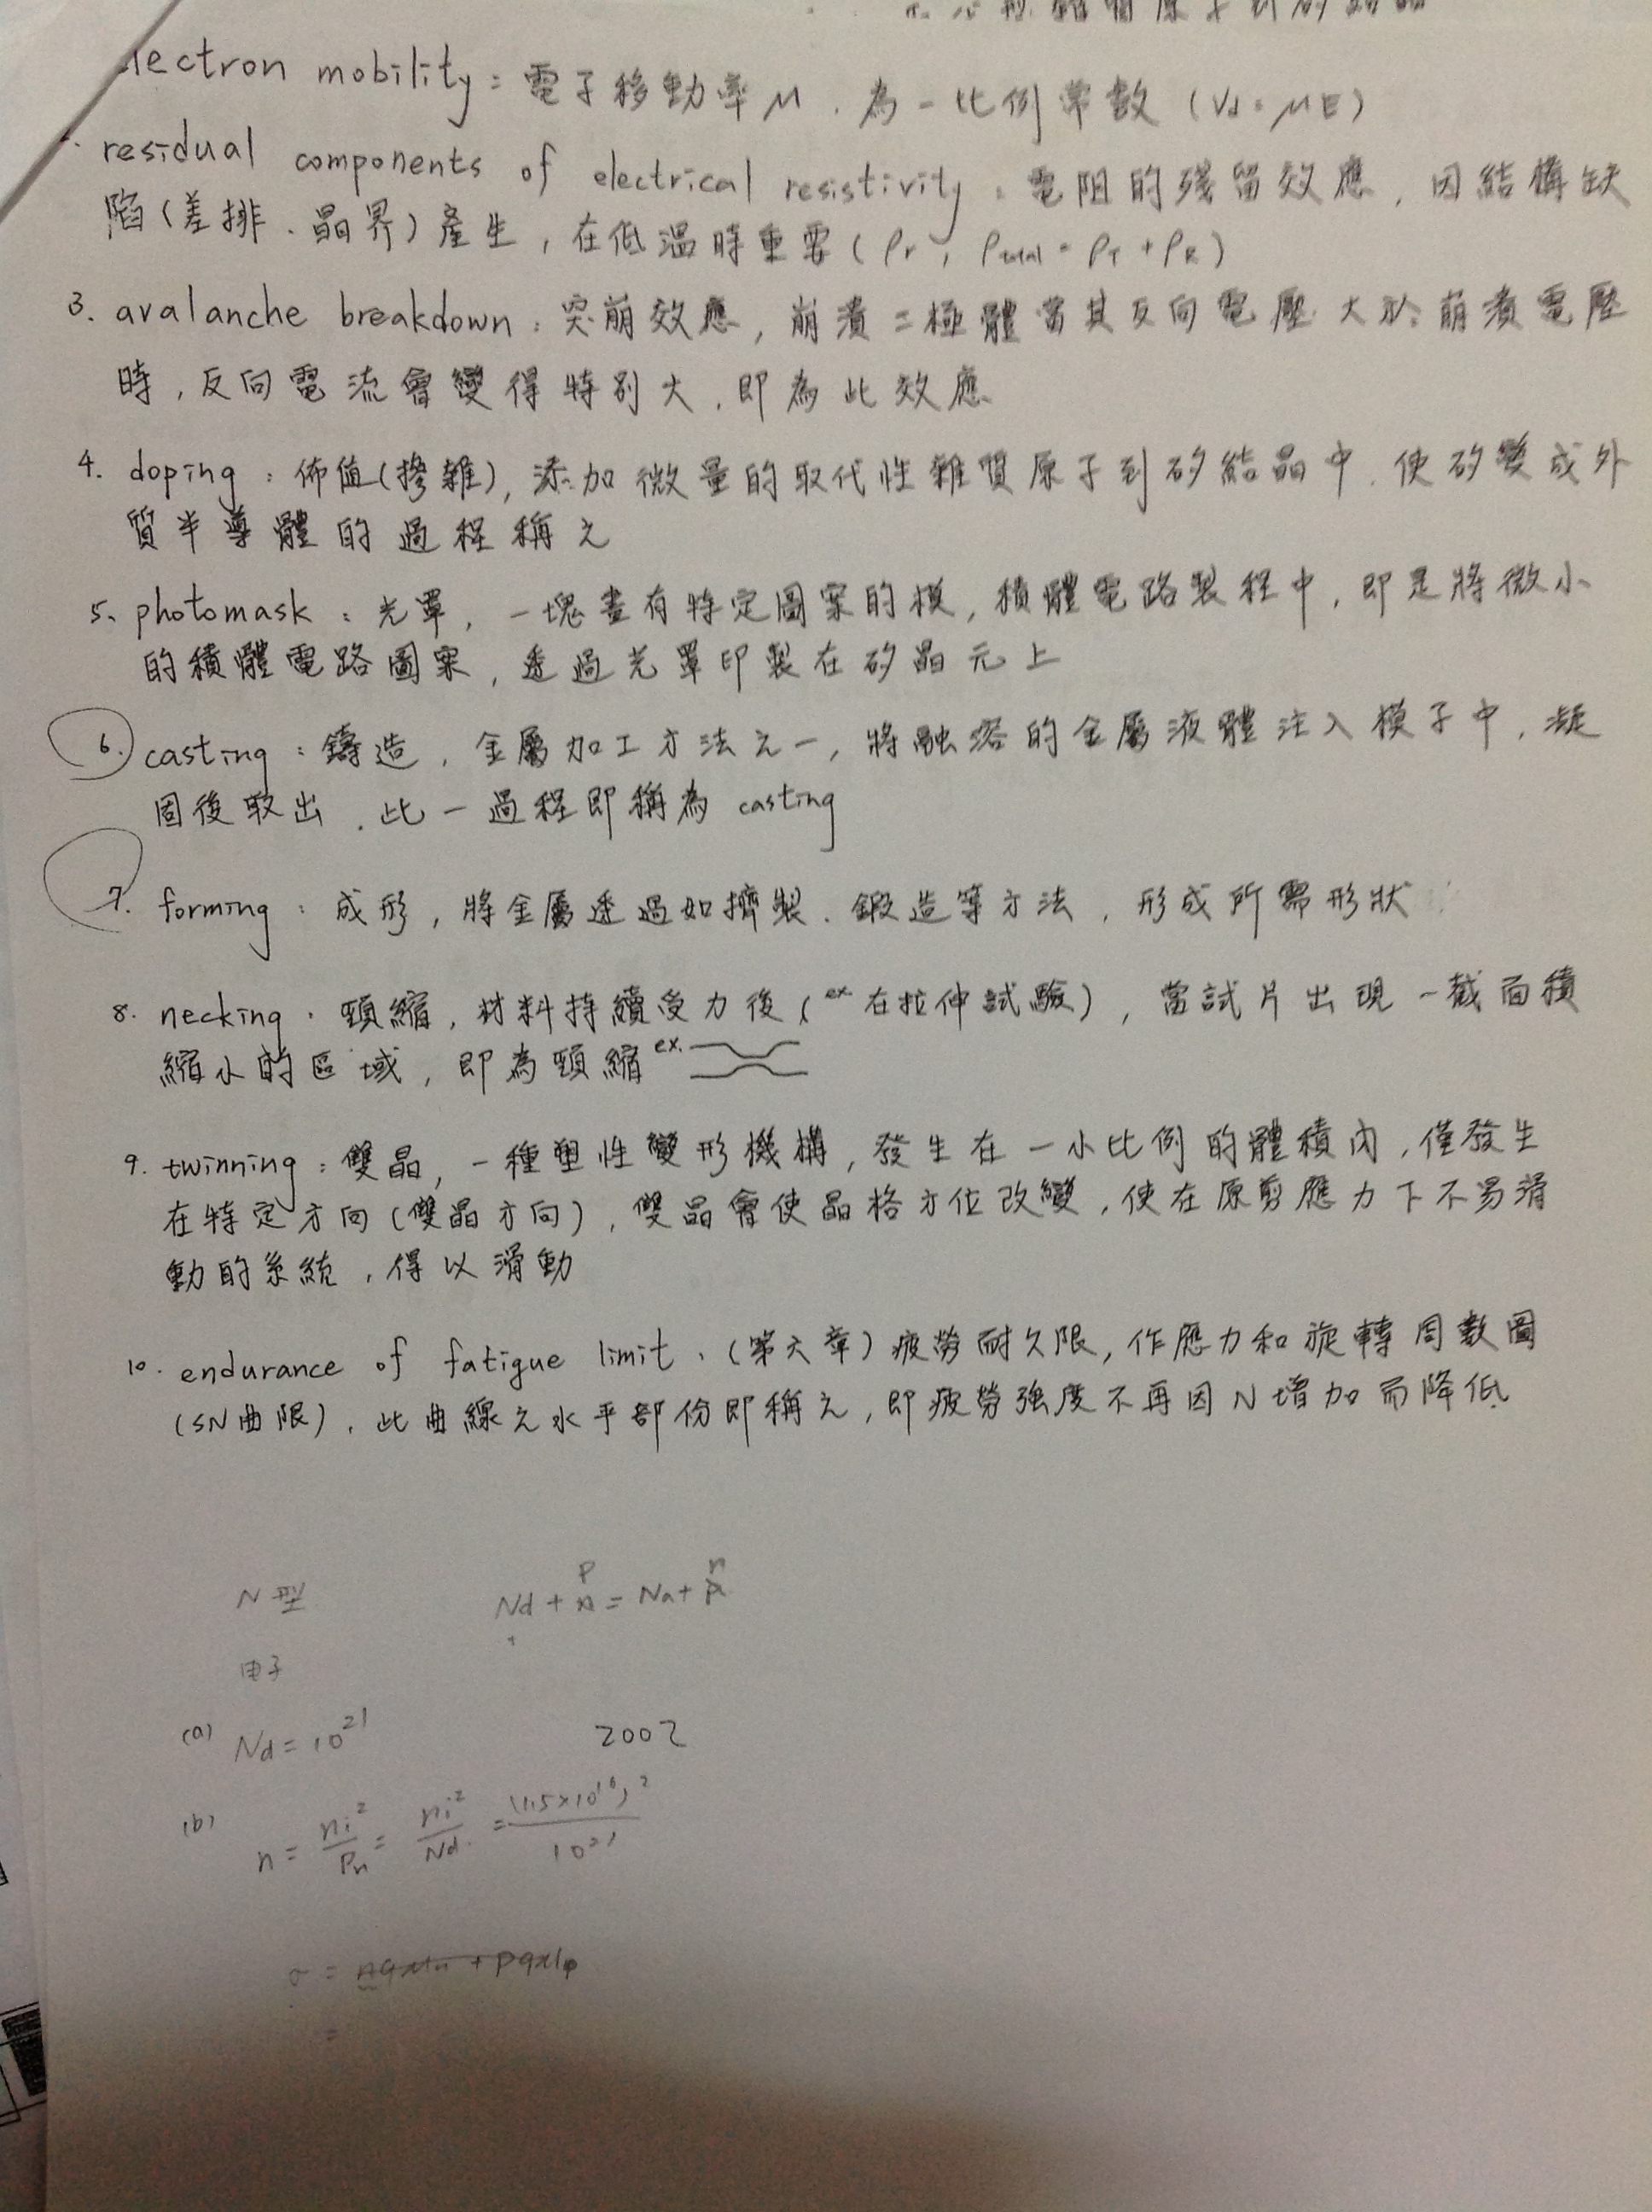 lectron mobility : 電子移動率 μ . 為一比例常數 (Vd = μE)
residual components of electrical resistivity : 電阻的殘留效應 , 因結構缺
陷 (差排 . 晶界) 產生 , 在低溫時重要 ( ρr , ρtotal = ρT + ρR )
3. avalanche breakdown : 突崩效應 , 崩潰二極體當其反向電壓大於崩潰電壓
時 , 反向電流會變得特別大 . 即為此效應
4. doping : 佈值(摻雜) , 添加微量的取代性雜質原子到矽結晶中 . 使矽變成外
質半導體的過程稱之
5. photomask : 光罩 , 一塊畫有特定圖案的模 , 積體電路製程中 , 即是將微小
的積體電路圖案 , 透過光罩印製在矽晶元上
6. casting : 鑄造 , 金屬加工方法之一 , 將融溶的金屬液體注入模子中 , 凝
固後取出 . 此一過程即稱為 casting
7. forming : 成形 , 將金屬透過如擠製 . 鍛造等方法 , 形成所需形狀
8. necking . 頸縮 , 材料持續受力後 ( ex 在拉伸試驗 ) , 當試片出現一截面積
縮小的區域 , 即為頸縮 ex.
9. twinning : 雙晶 , 一種塑性變形機構 , 發生在一小比例的體積內 , 僅發生
在特定方向 (雙晶方向) , 雙晶會使晶格方位改變 , 使在原剪應力下不易滑
動的系統 , 得以滑動
10. endurance of fatigue limit . (第六章) 疲勞耐久限 , 作應力和旋轉周數圖
(SN曲限) . 此曲線之水平部份即稱之 , 即疲勞強度不再因N增加而降低
N 型 Nd + p = Na + n
电子
(a) Nd = 10^21 2002
(b) n = ni^2/Pn = ni^2/Nd = (1.5×10^16)^2/10^21
σ =
=